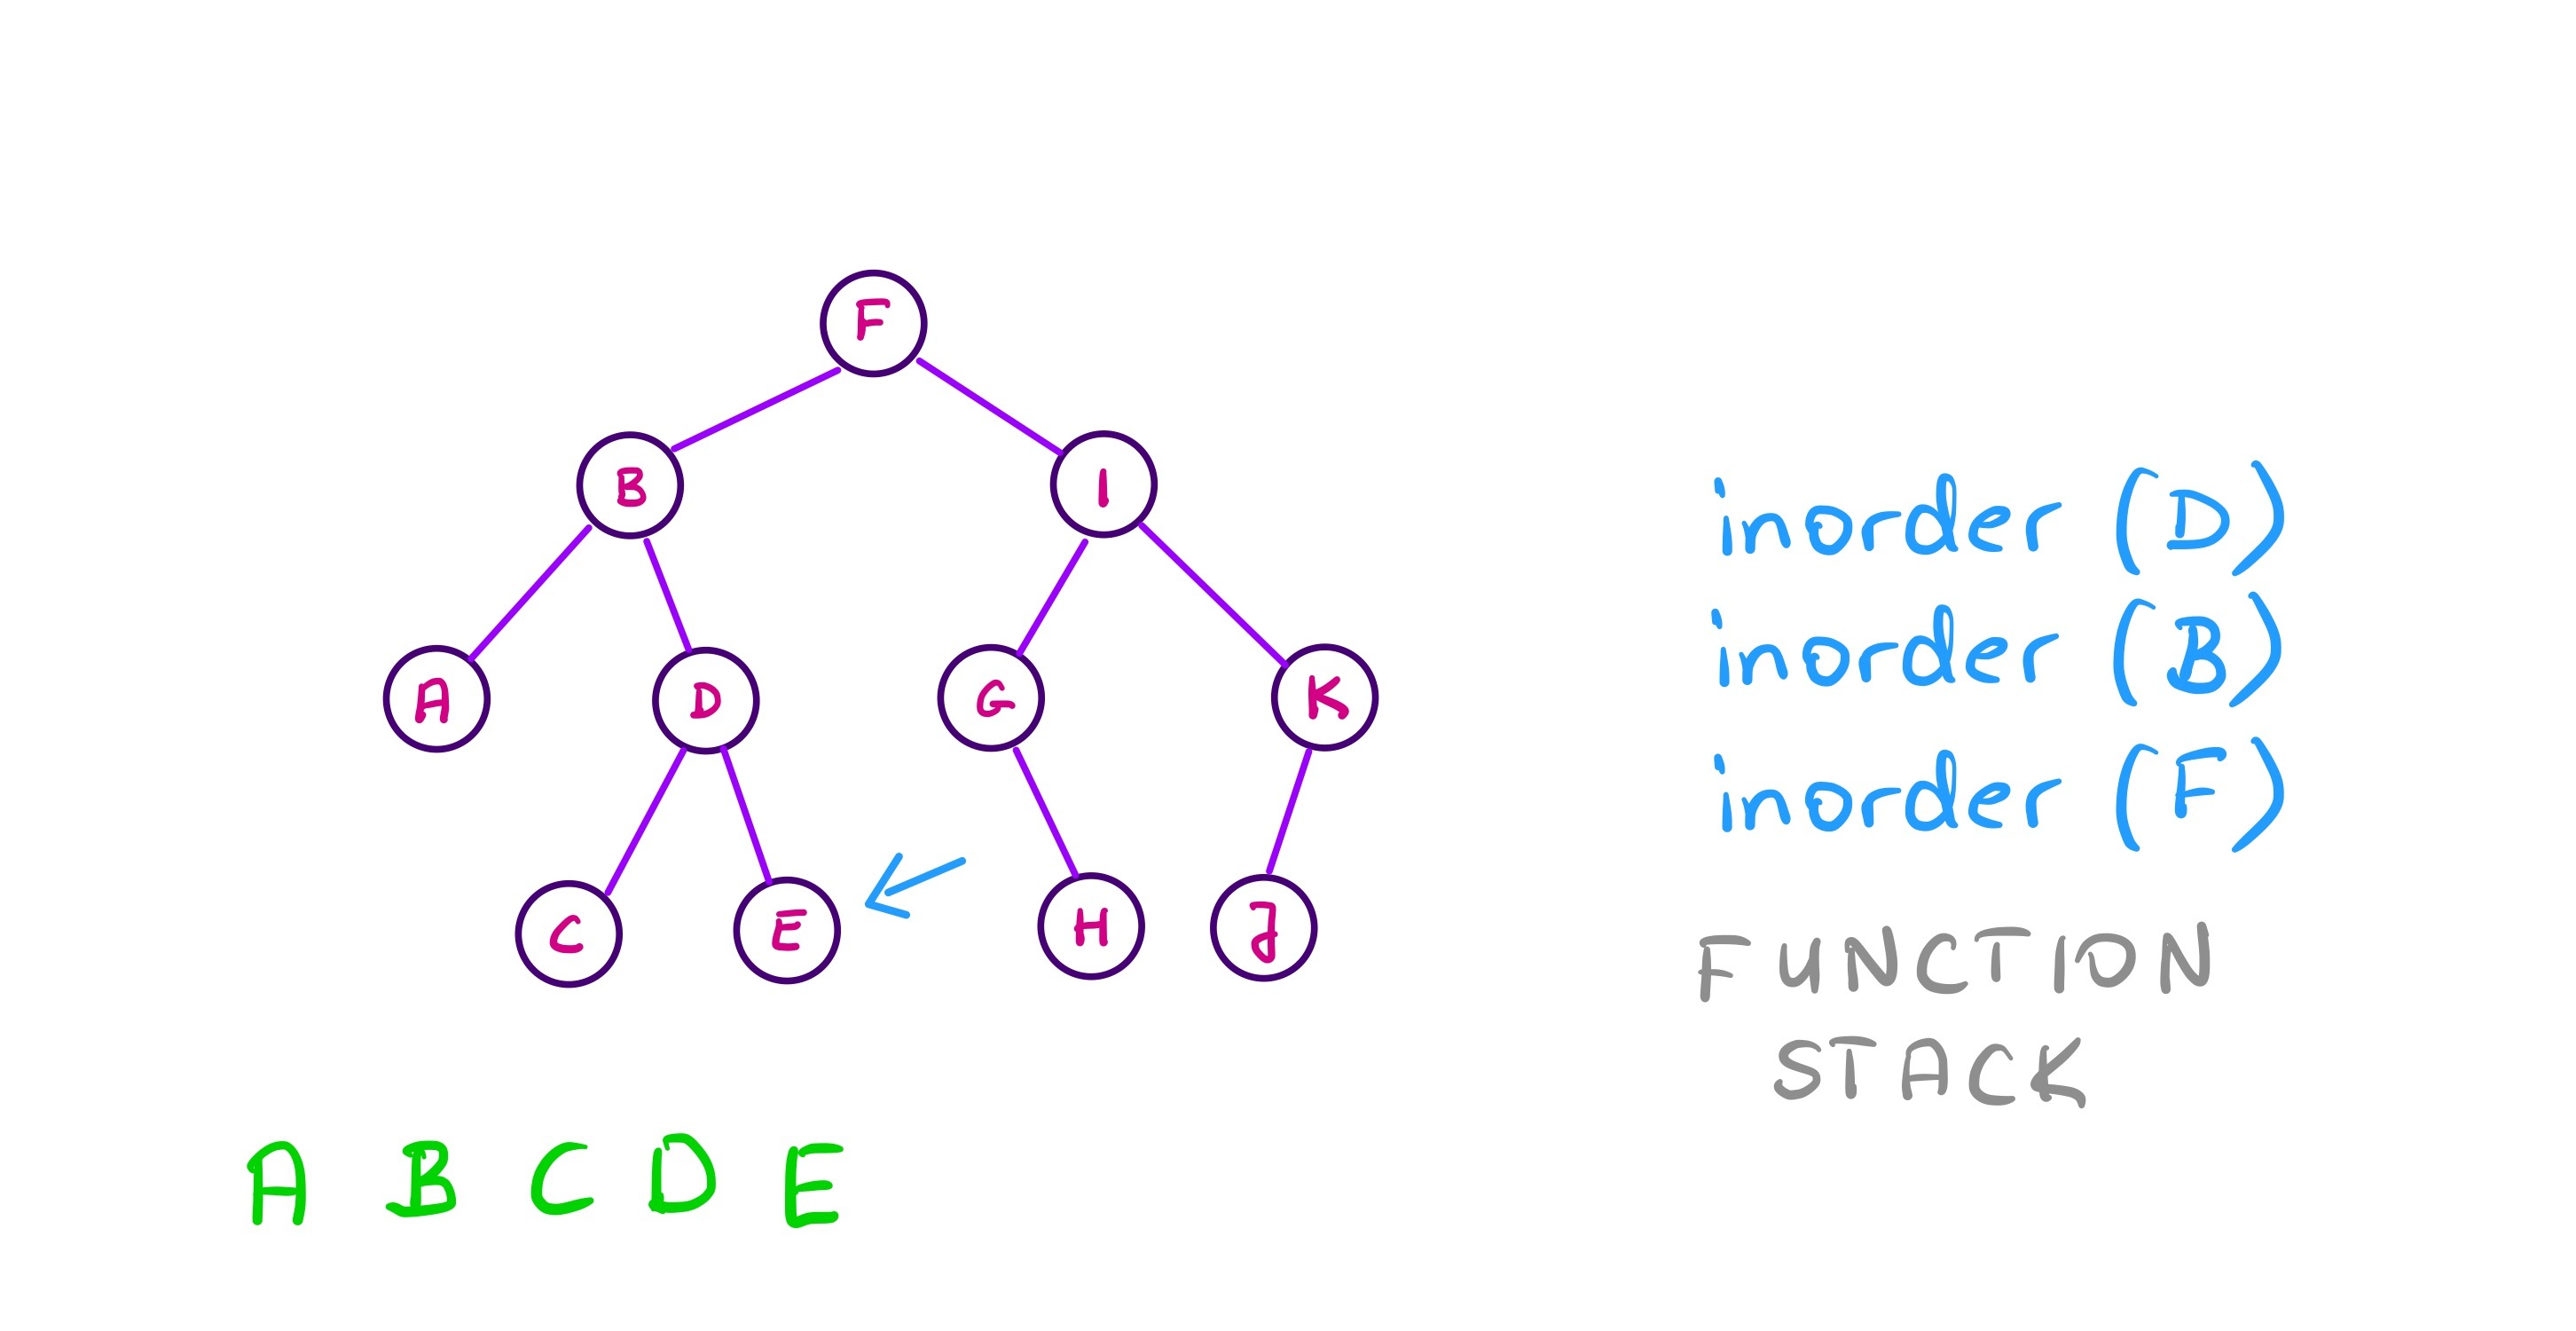 F
B I
A D G K
C E H J
inorder (D)
inorder (B)
inorder (F)
FUNCTION
STACK
A B C D E